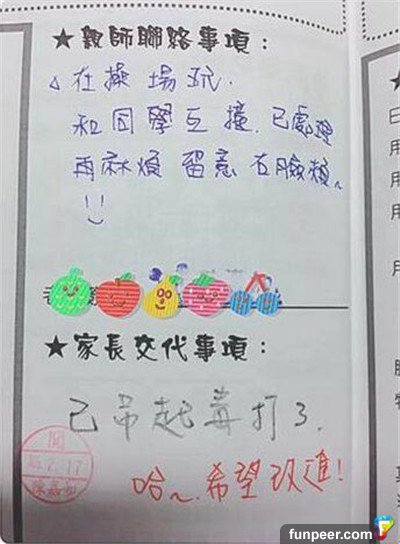 ★親師聯絡事項：
△在操場玩.
和同學互撞.已處理
再麻煩 留意 右臉頰~
!!
★家長交代事項：
已吊起毒打了.
閱
哈~希望改進!
funpeer.com